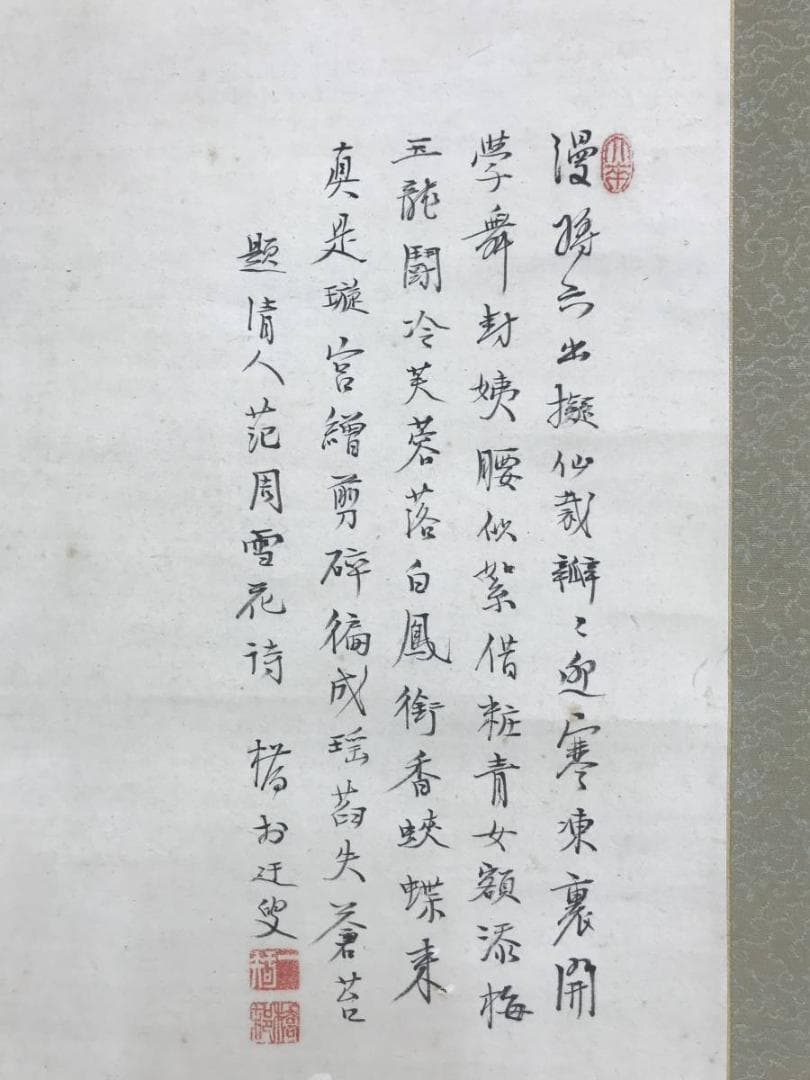 漫將六出擬仙裁瓣〻迎寒凍裏開
學舞封姨腰似絮借粧青女額添梅
玉龍鬪冷芙蓉落白鳳銜香蛺蝶来
真是璇宮繒剪碎徧成瑶失蒼苔
題清人范周雪花詩 迂叟